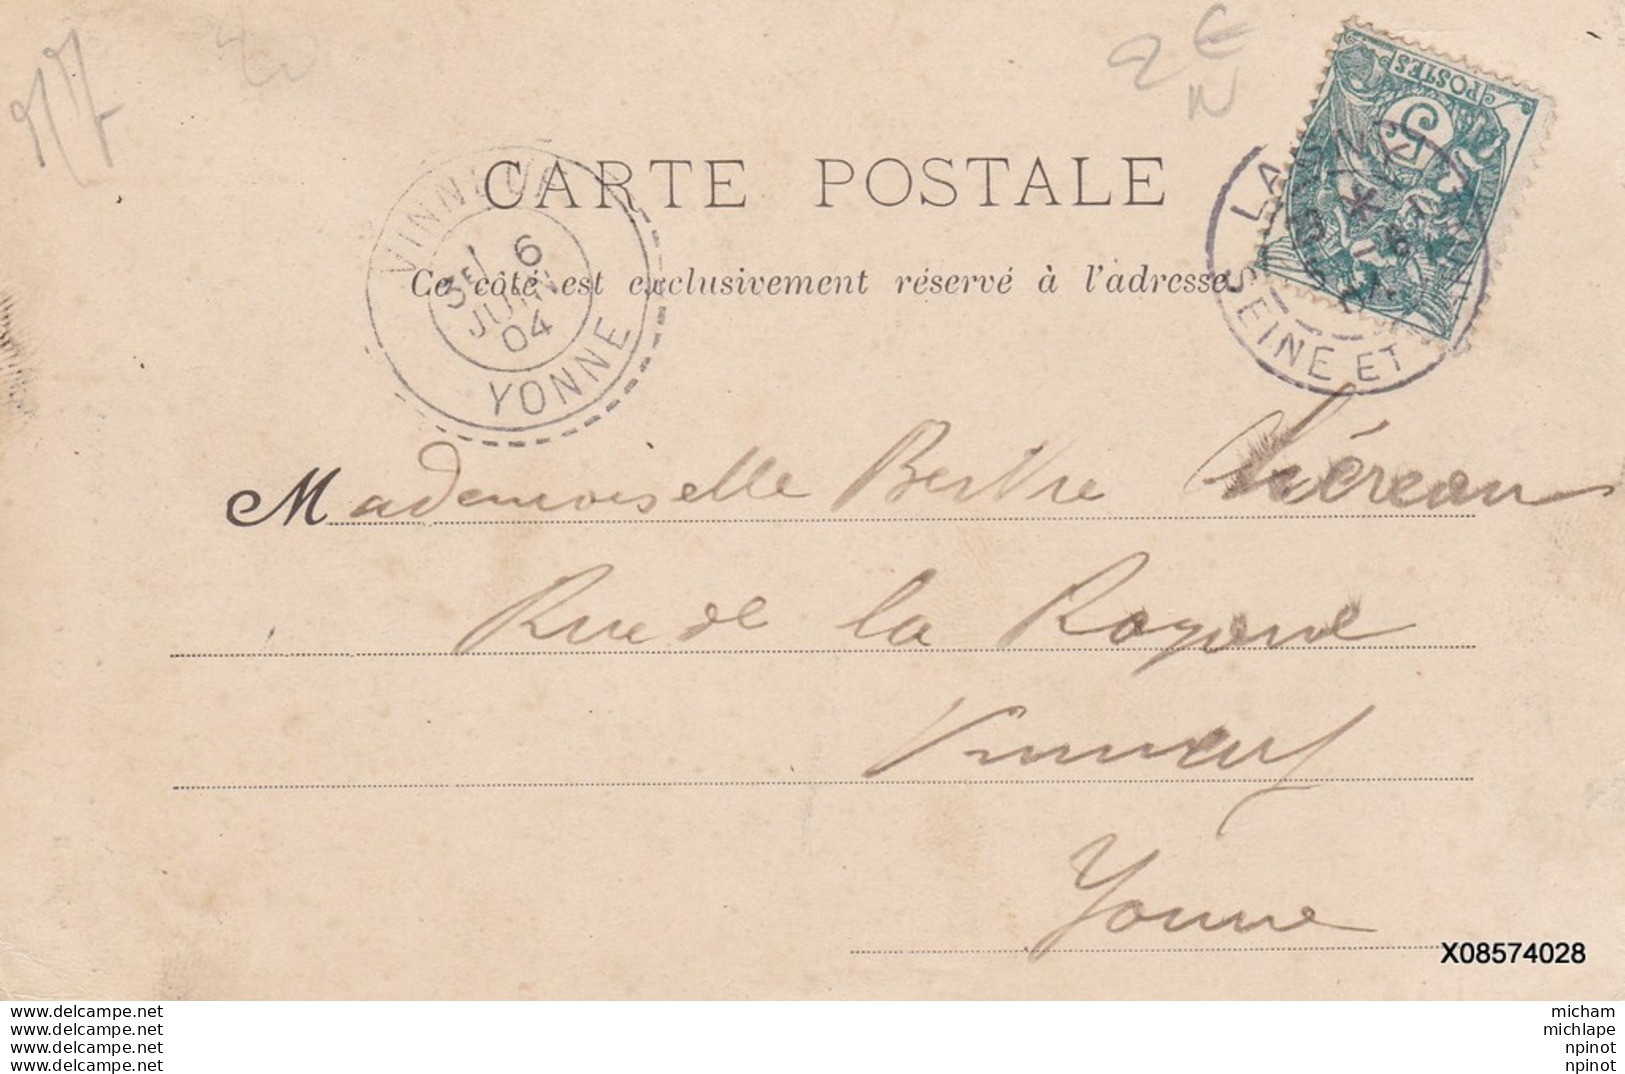 17
2 €
N
POSTES
5
CARTE POSTALE
VINNEUF
3E
6
JUIN
04
YONNE
LA
SEINE ET
Ce côté est exclusivement réservé à l'adresse
Mademoiselle Berthe Chéreau
Rue de la
Vinneuf
Yonne
X08574028
www.delcampe.net
www.delcampe.net
www.delcampe.net
www.delcampe.net
micham
michlape
npinot
npinot